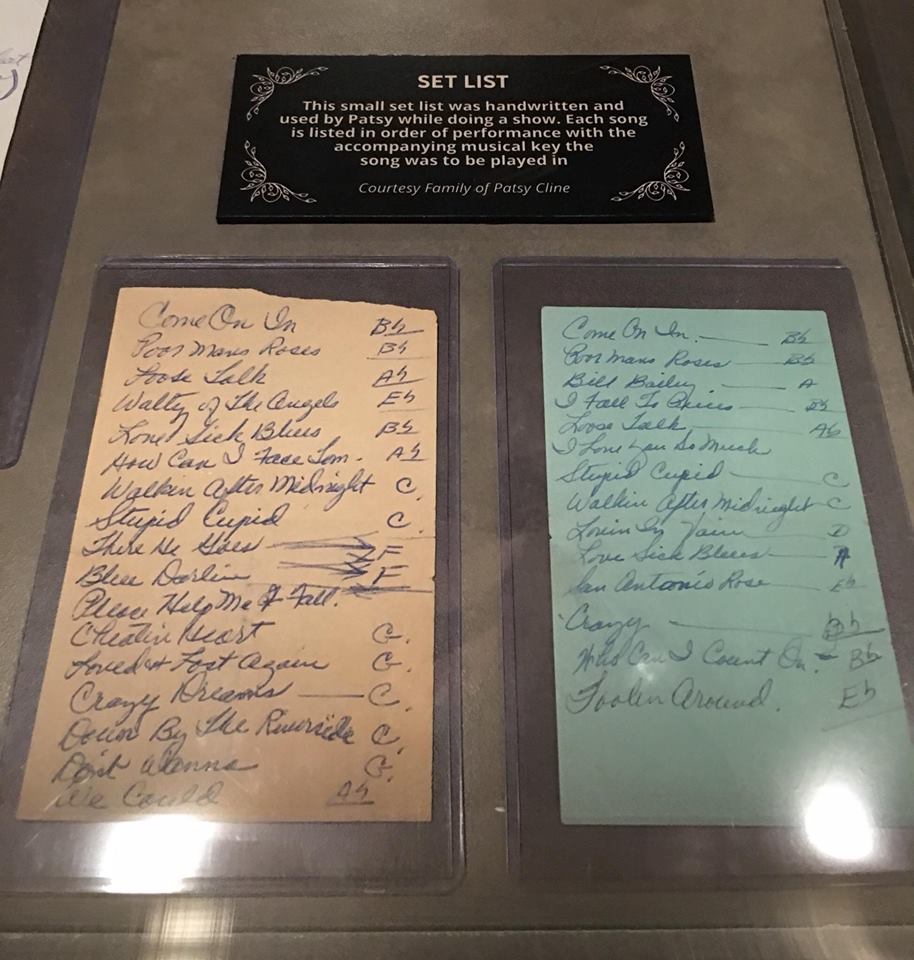 SET LIST
This small set list was handwritten and
used by Patsy while doing a show. Each song
is listed in order of performance with the
accompanying musical key the
song was to be played in
Courtesy Family of Patsy Cline
Come On In Bb
Poor Mans Roses Bb
Loose Talk Ab
Waltz of The Angels Eb
Love Sick Blues Bb
How Can I Face Tom. Ab
Walkin After Midnight C.
Stupid Cupid C.
There He Goes F
Blue Darlin F
Please Help Me I Fall.
Cheatin Heart G.
Loved & Lost Again G.
Crazy Dreams — C.
Down By The Riverside C.
Don't Wanna G.
We Could Ab
Come On In. — Bb
Poor Mans Roses — Bb
Bill Bailey. — A
I Fall To Pieces — Bb
Loose Talk — Ab
I Love You So Much
Stupid Cupid — C
Walkin After Midnight C
Lovin In Vain — D
Love Sick Blues — A
San Antonio Rose — Eb
Crazy — Bb
Who Can I Count On — Bb
Foolin Around. Eb